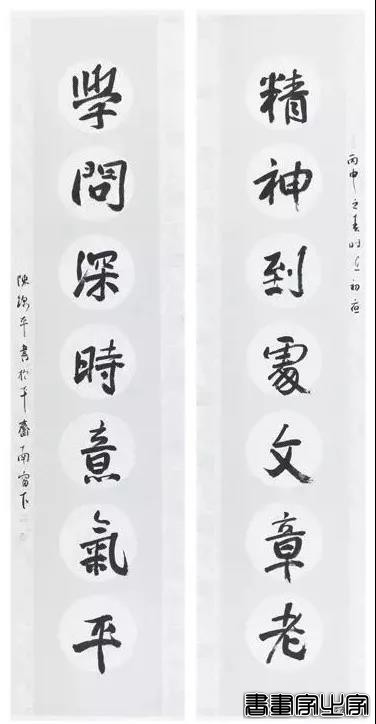 丙申之春時在初夜
精神到處文章老
學問深時意氣平
陳海平書於平齋南窗下
書畫家之家